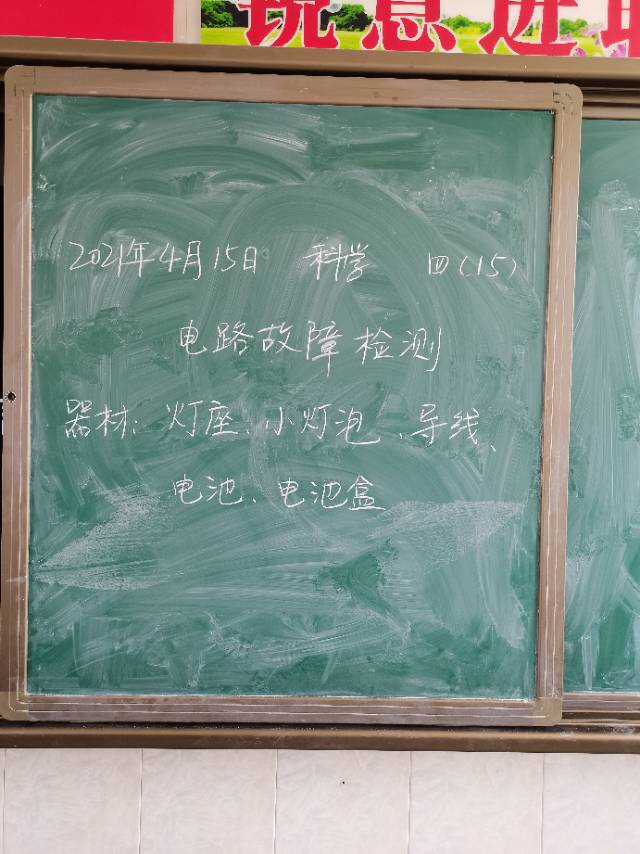 锐意进取
2021年4月15日 科学 四(15)
电路故障检测
器材:灯座、小灯泡、导线、
电池、电池盒